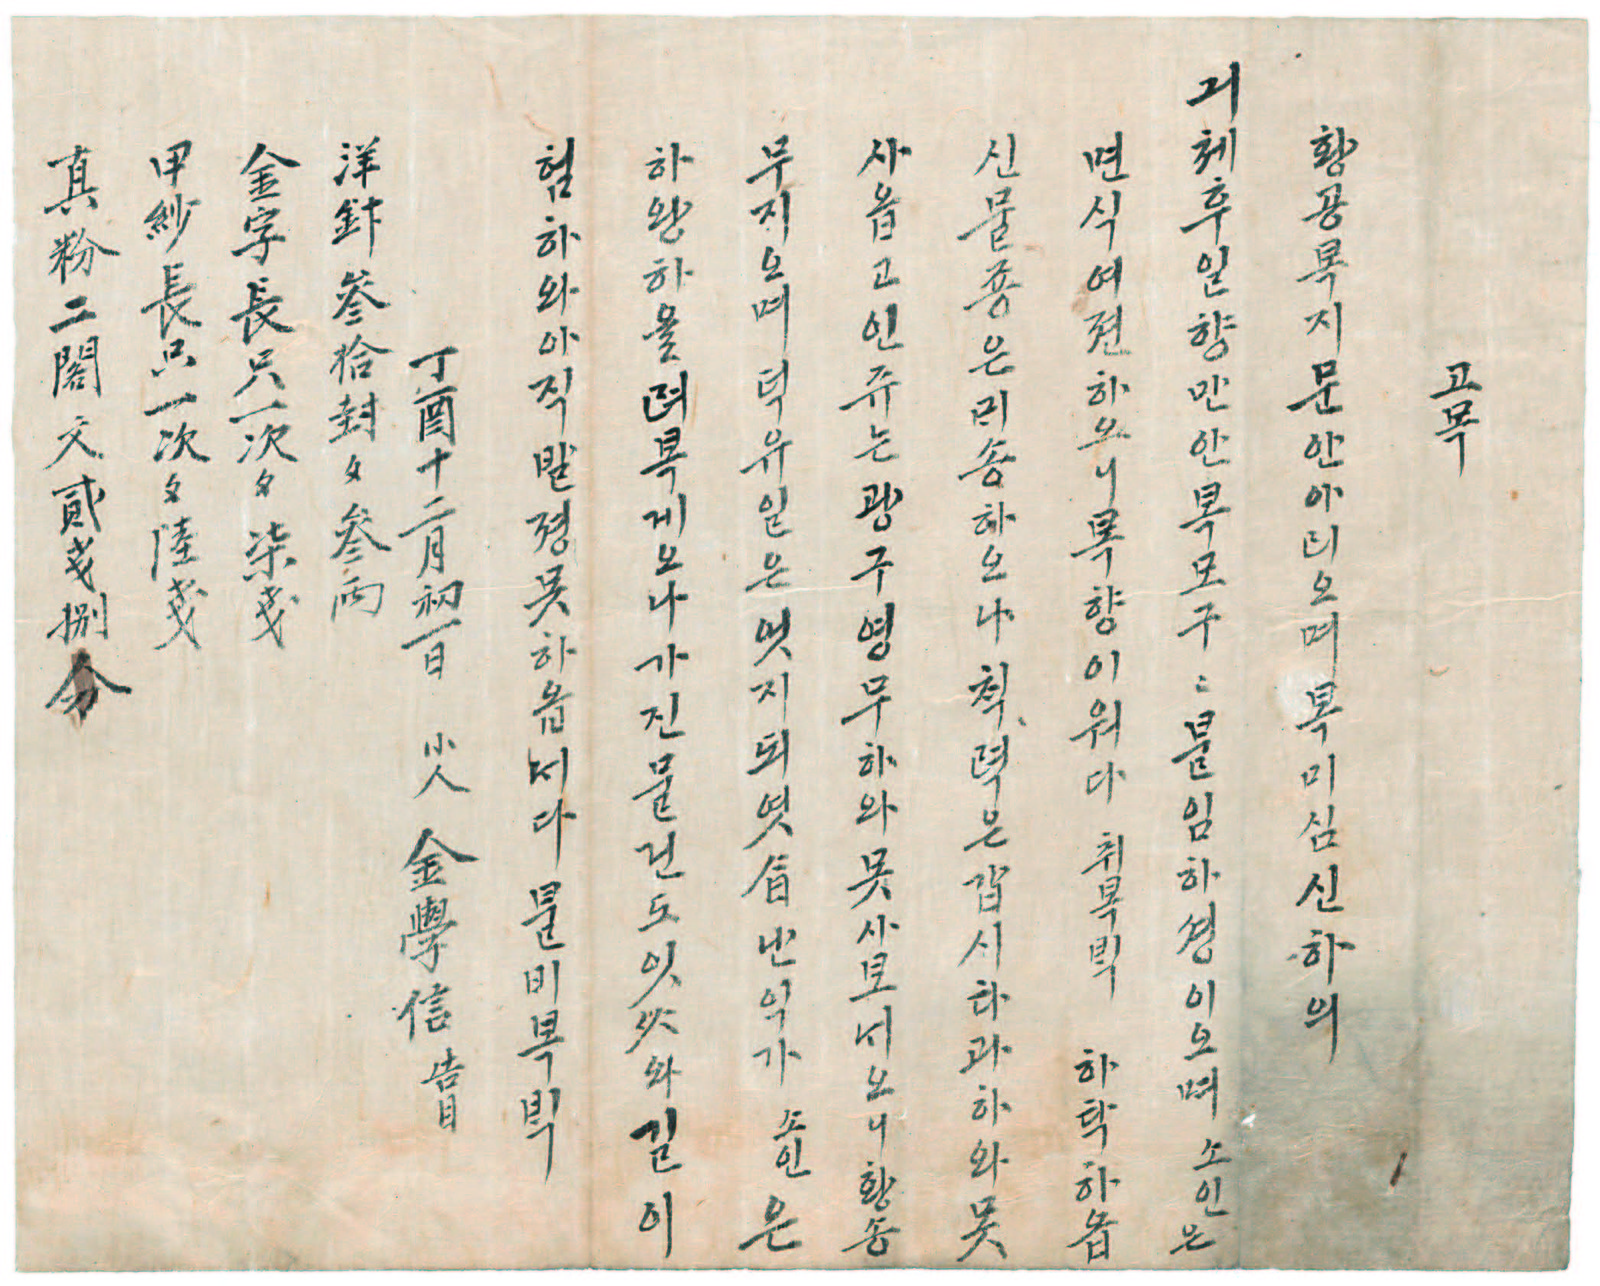 고목
황공복지문안아뢰오며복미심신하의
긔체후일향만안복모구〻불임하셩이오며 소인은
면식여젼하오니복향이워다 취복븩 하탁하옵
신물죵은미송하오나 쳑력은갑시하과하와못
사옵고인쥬는광구영무하와못사보서오니황송
무지오며뎍유일은엇지되엿삽난익가 소인은
하왕하올려복게오나가진물건도잇삽와길이
험하와아직발졍못하옵서다 물비복븩
丁酉十二月初一日 小人 金學信 告目
洋針參拾封夕參兩
金字長只一次夕柒戔
甲紗長只一次夕陸戔
真粉二閣文貳戔捌分